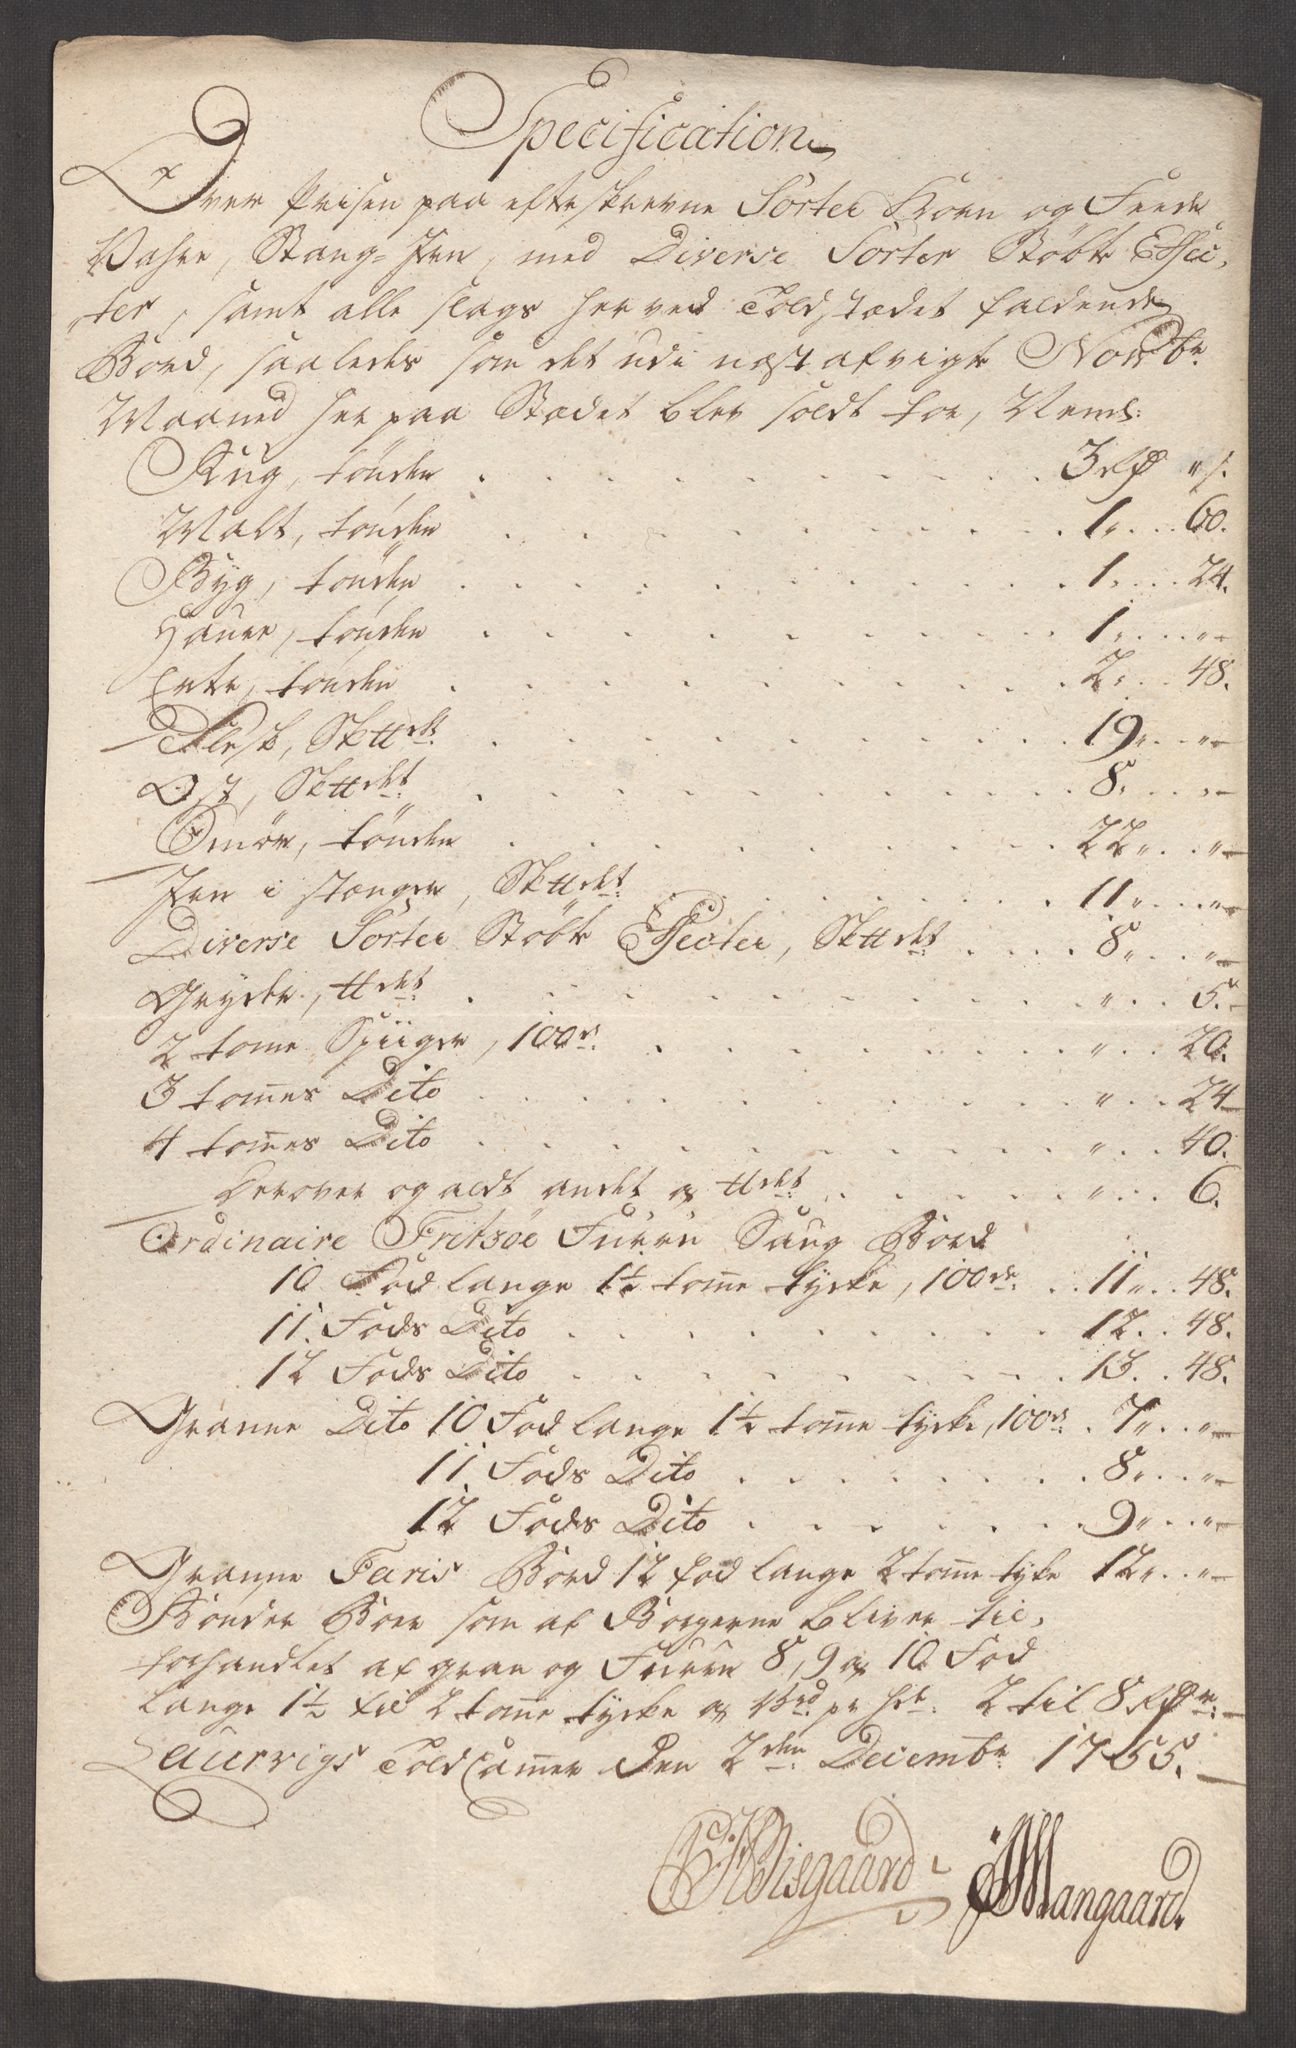 Specification
Over Prisen paa efterskrevne Sorter Korn og Feede
Vahre, Stang-Jern, med Diverse Sorter Støbte Effec-
ter, samt alle slags her ved Toldstædet faldende
Bord, saaledes som det udi næst afvigte Novbr
Maaned her paa Stædet blev soldt for, Neml:
Rug, tønden . . . 3 rdr " s.
Malt, tønden . . . 1 " 60.
Byg, tønden . . . 1 " 24.
Haver, tønden . . . 1 " "
Erter, tønden . . . 2 " 48.
Flesk, Sk℔det . . . 19 " "
Ost, Sk℔det . . . 8 " "
Smør, tønden . . . 22 " "
Jern i stænger, Sk℔det . . . 11 " "
Diverse Sorter Støbte Effecter, Sk℔det . . . 8 " "
Gryder, ℔det . . . " 5.
2 tome Spiiger, 100de . . . " 20.
3 tom̄es Dito . . . " 24
4 tom̄es Dito . . . " 40.
Derover og aldt andet a ℔det . . . " 6.
Ordinaire Fritsøe Furru Saug Bord
10 Fod lange 1½ tom̄e tycke, 100de . . 11 " 48.
11 Fods Dito . . . 12 . . 48.
12 Fods Dito . . . 13 . . 48.
Granne Dito 10 Fod lange 1½ tom̄e tycke, 100de . 7 " "
11 Fods Dito . . . 8 " "
12 Fods Dito . . . 9 " "
Granne Faris Bord 12 fod lange 2 tom̄e tyke 12 " "
Bønder Bord som af Borgerne bliver til-
forhandlet af gran og Furru 8, 9 a 10 Fod
lange 1½ til 2 tom̄e tycke a pr 2 til 8 rdr
Laurvigs Told Cam̄er den 2den Decembr 1765.
Wisgaard Mangaard.